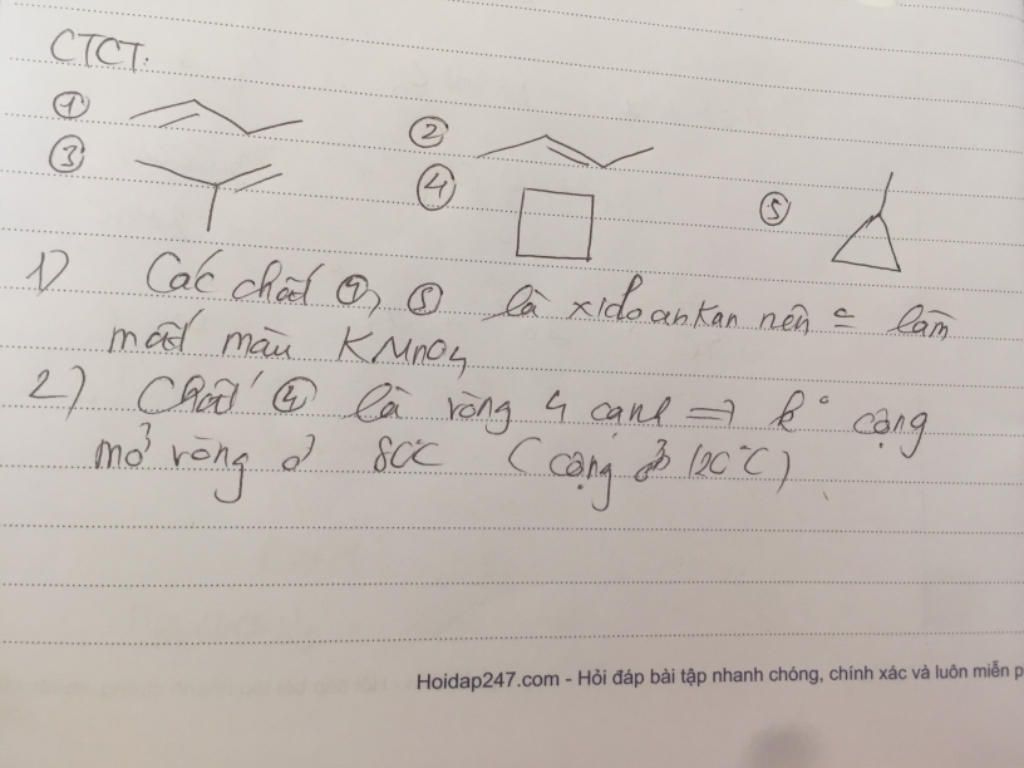 CTCT:
① ②
③ ④ ⑤
1) Các chất ④, ⑤ là xicloankan nên làm
mất màu KMnO4
2) Chất ④ là vòng 4 cạnh => k° cộng
mở vòng ở 80°C (cộng ở 120°C)
Hoidap247.com - Hỏi đáp bài tập nhanh chóng, chính xác và luôn miễn p